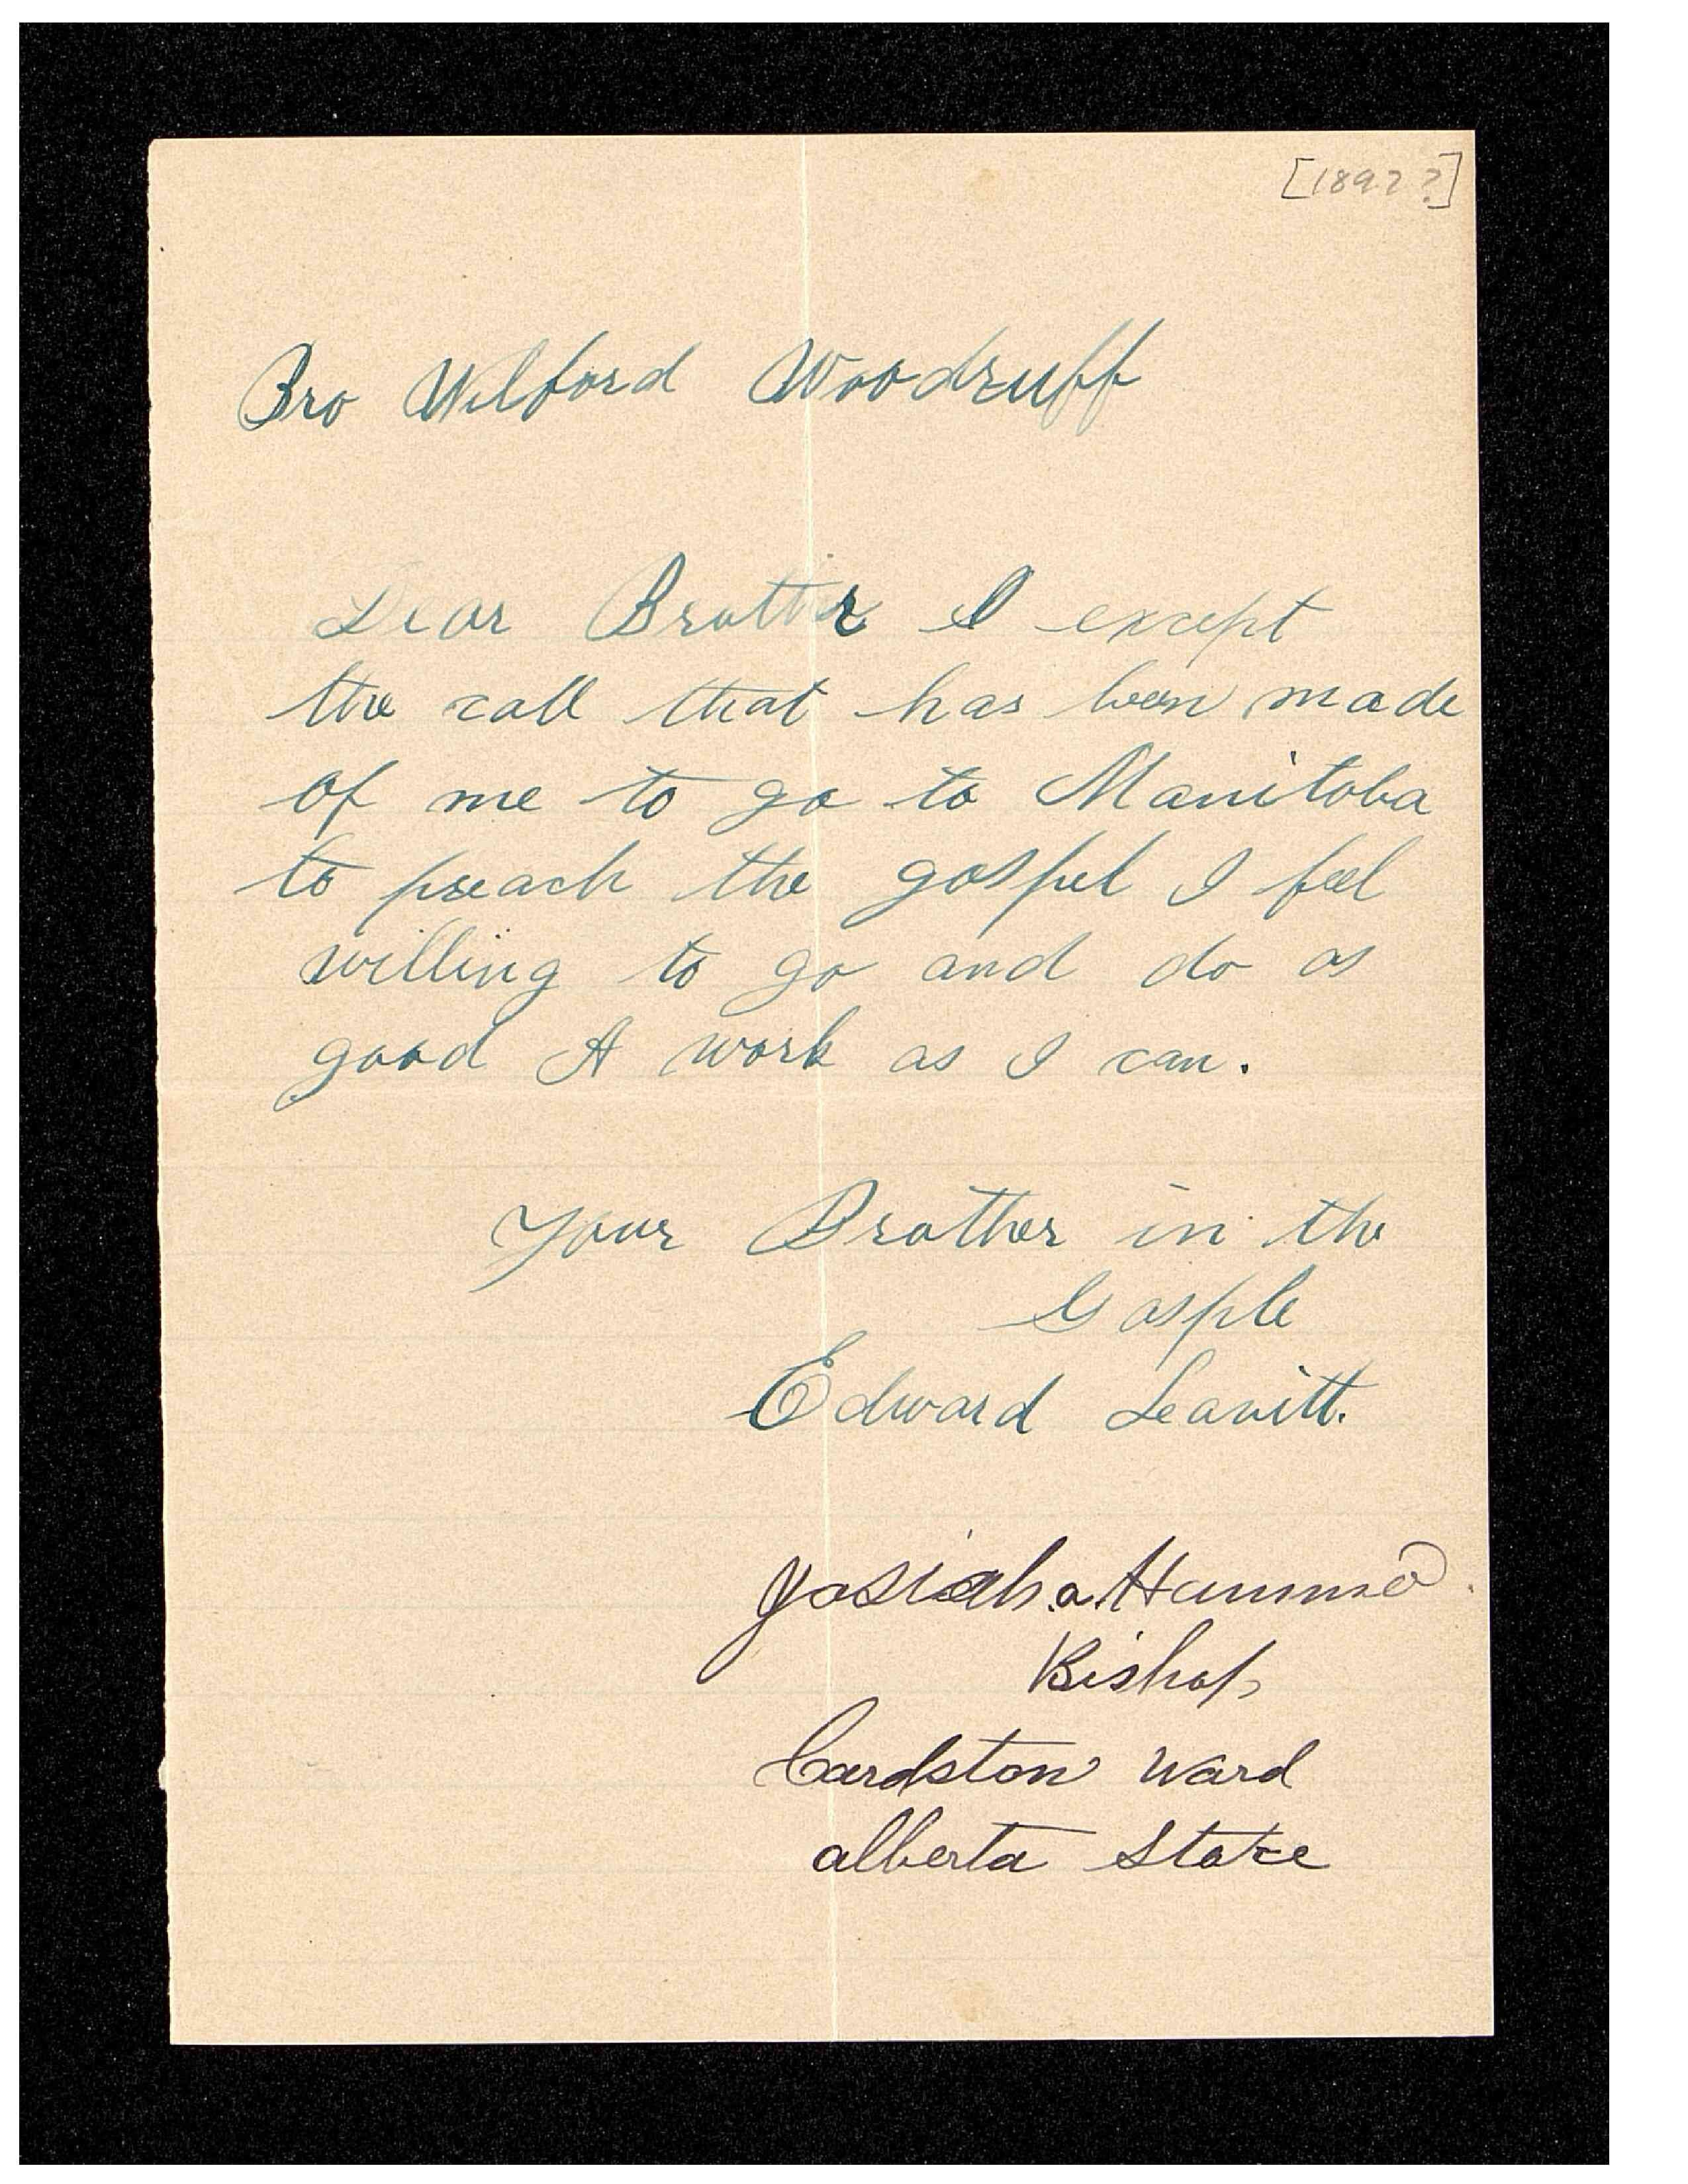 [189? ?]
Bro Wilford Woodruff
Dear Brother I except
the call that has been made
of me to go to Manitoba
to preach the gospel I feel
willing to go and do as
good A work as I can.
Your Brother in the
Gosple
Edward Leavitt.
Josiah a Hammer
Bishop
Cardston Ward
alberta Stake